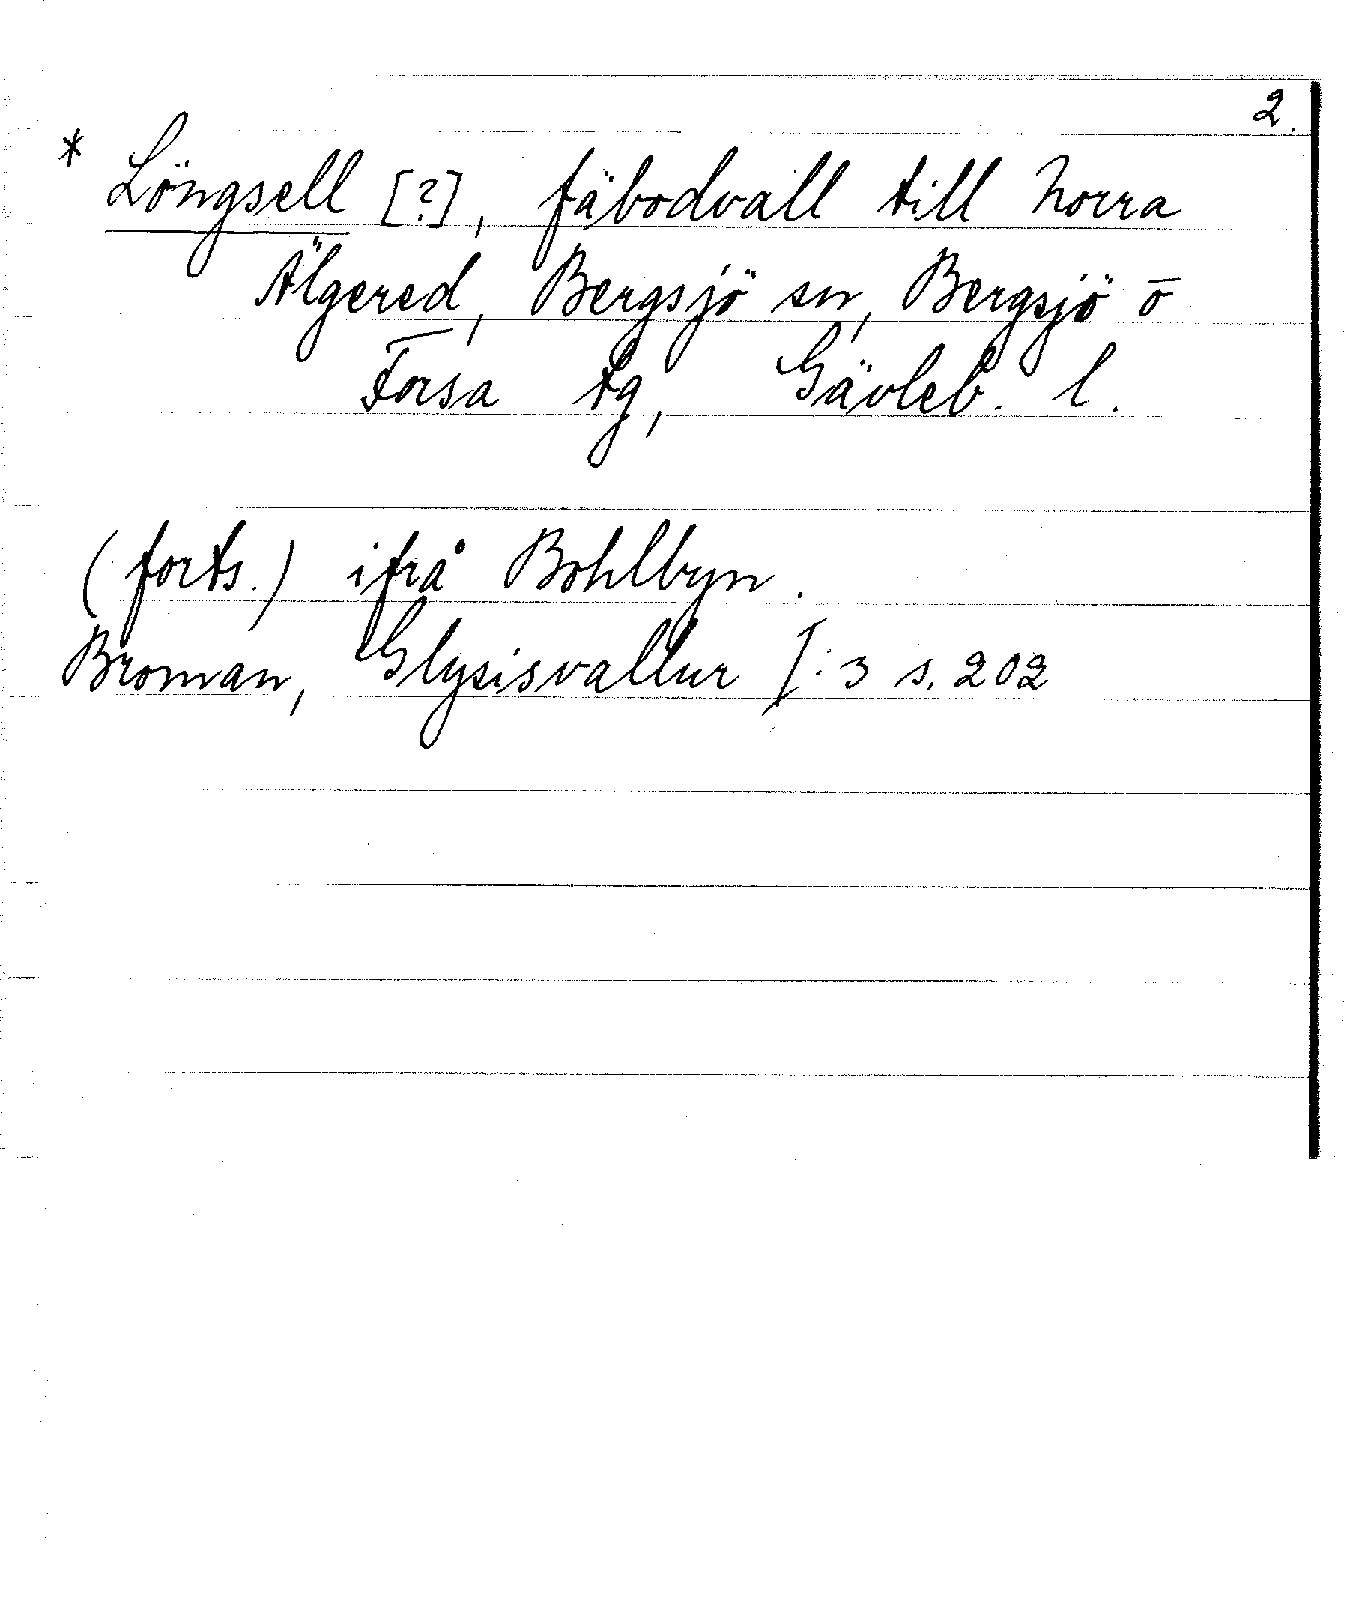 2.
* Löngsell [?], fäbodvall till Norra
Älgered, Bergsjö sn, Bergsjö o
Forsa tg, Gävleb. l.
(forts.) ifrå Bohlbyn.
Broman, Glysisvallur I:3 s. 202